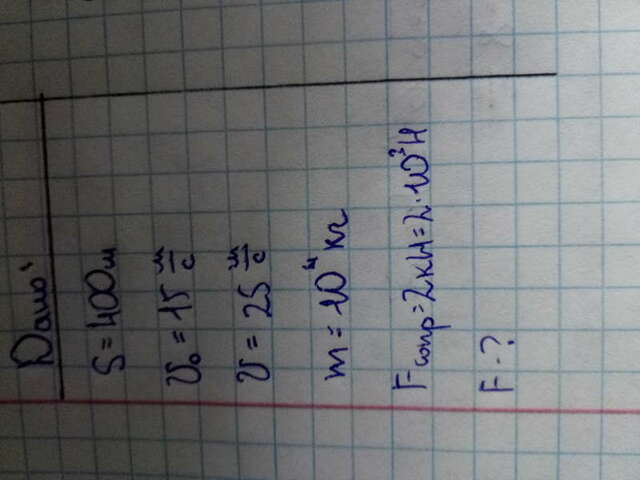 Дано:
S = 400м
V₀ = 15 м/с
V = 25 м/с
m = 10⁴ кг
Fсопр = 2кН = 2·10³Н
F - ?